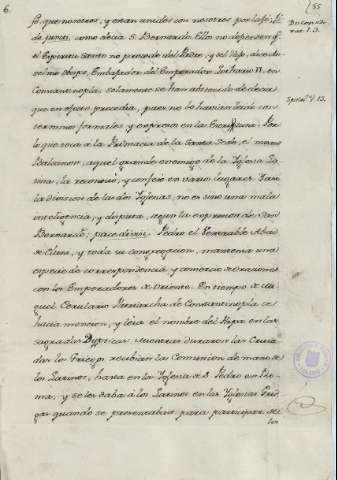 6. 55
so, que nosotros, y estan unidos con nosotros por la fé: fi-
de juncti, como decia S. Bernardo. Ellos no dixeron q.e
el Espiritu Santo no procede del Padre, y del Hijo,
Obispo, Embaxador del Emperador Lothario II, en
Constantinopla: solamente se han abstenido de decir
que en efecto procedia, pues no lo havian leido con
terminos formales, y expresos en las Escrituras. Por
lo que toca a la Primacia de la Santa Sede, el mismo
Balsamon, aquel grande enemigo de la Iglesia La-
tina, la reconoció, y confesó en varios lugares.
la division de las dos Iglesias, no es sino una mala
inteligencia, y disputa, segun la expresion de San
Bernardo: pace divisi. Pedro el Venerable Abad
de Cluni, y toda su congregacion, mantenia una
especie de correspondencia, y comercio de oraciones
con los Emperadores de Oriente. En tiempo de Mi-
guel Cerulario Patriarcha de Constantinopla se
hacia mencion, y leia el nombre del Papa en las
sagradas Dypticas. Mientras duraron las Cruza-
das los Griegos recibian la Comunion de mano de
los Latinos, hasta en la Iglesia de S. Pedro en Ro-
ma, y se les daba á los Latinos en las Iglesias Grie-
gas quando se presentaban para participar de
los